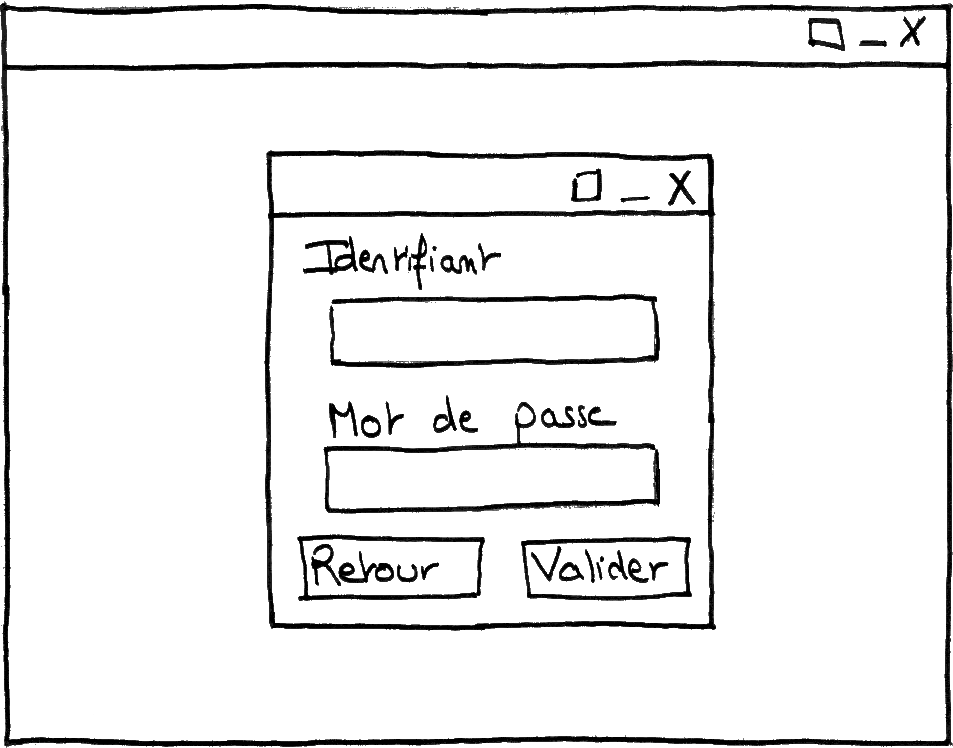 Identifiant
Mot de passe
Retour
Valider